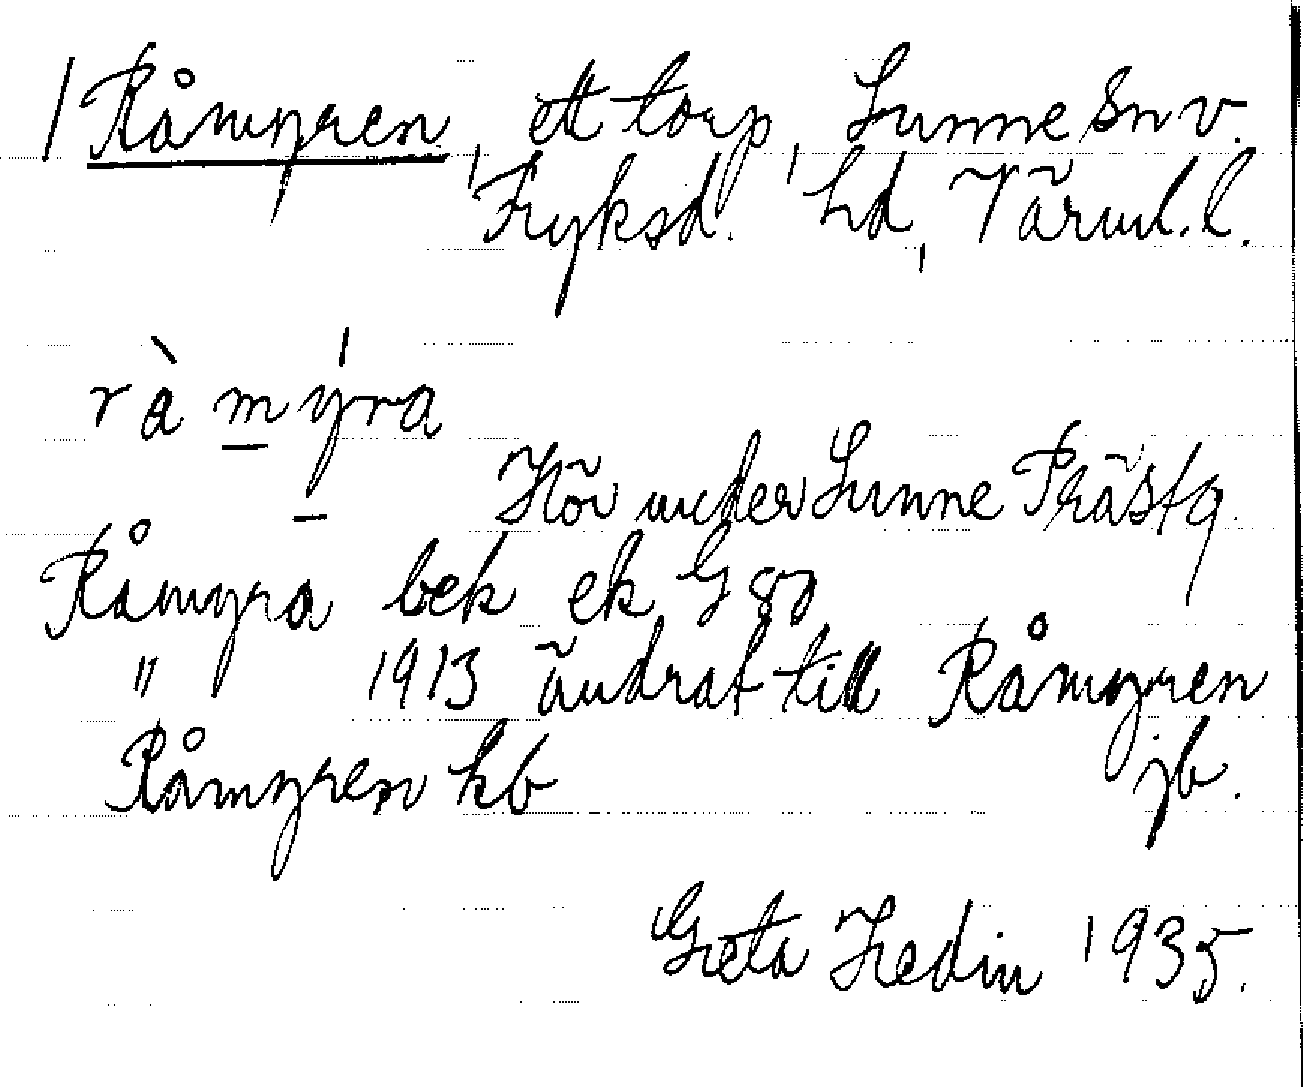 / Råmyren, ett torp, Sunne sn v.
Fryksd. hd, Värml. l.
rà mýra
Hör under Sunne Prästg.
Råmyra bek ek G 80
" 1913 ändrat till Råmyren
Råmyren kb jb.
Greta Hedin 1935.